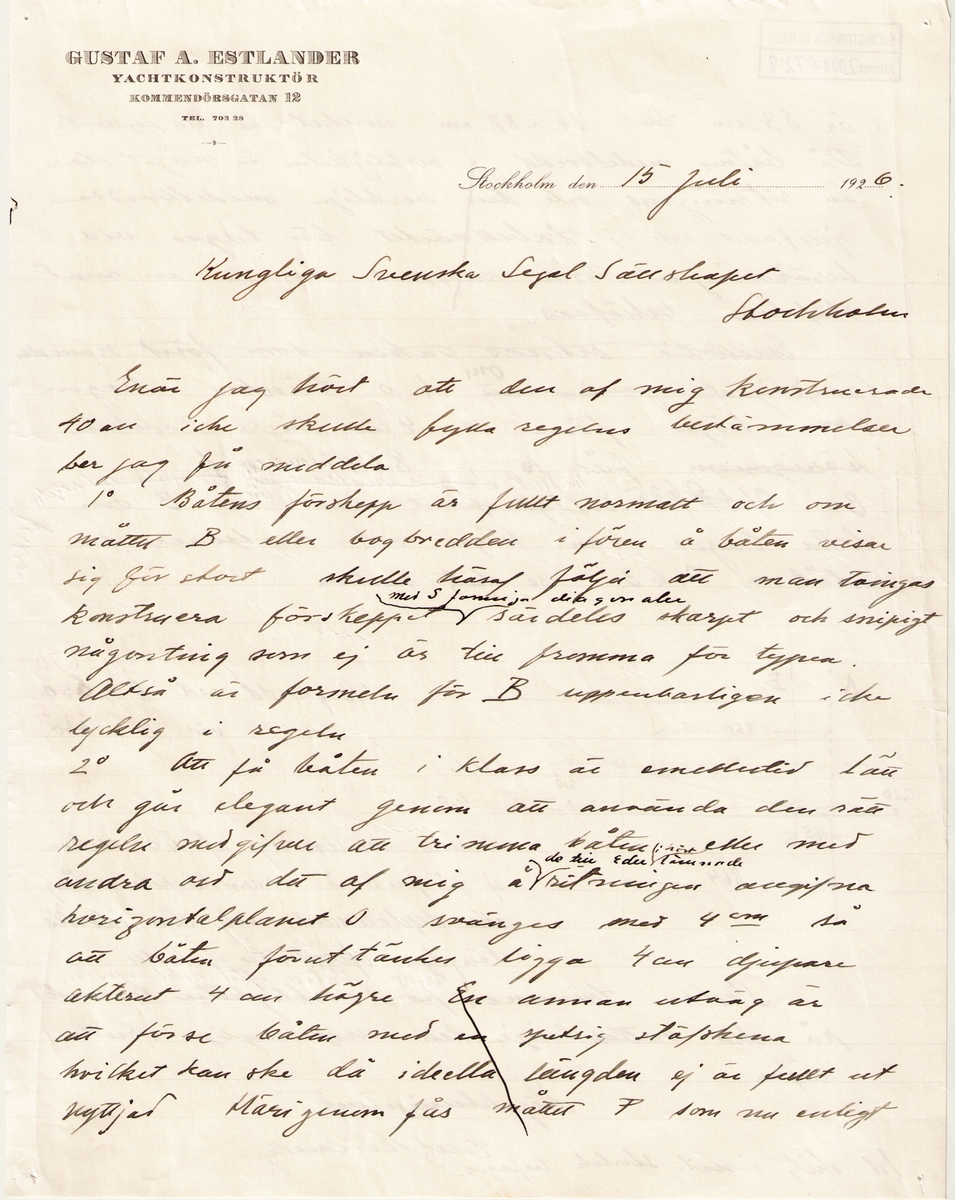 GUSTAF A. ESTLANDER
YACHTKONSTRUKTÖR
KOMMENDÖRSGATAN 12
TEL. 702 28
Stockholm den 15 Juli 1926.
Kungliga Svenska Segel Sällskapet
Stockholm
Enär jag hört att den af mig konstruerade
40 an icke skulle fylla regelns bestämmelser
ber jag få meddela
1° Båtens förskepp är fullt normalt och om
måttet B eller bogbredden i fören å båten visar
sig för stort skulle häraf följa att man tvingas
med S formiga diagonaler
konstruera förskeppet särdeles skarpt och snipigt
någonting som ej är till fromma för typen.
Altså är formeln för B uppenbarligen icke
lycklig i regeln
2° Att få båten i klass är emellertid lätt
och går elegant genom att använda den rätt
regeln medgifver att trimma båten eller med
de till Eder lämnade
andra ord det af mig å ritningen angifna
horizontalplanet 0 svänges med 4 cm så
att båten förut tänkes ligga 4 cm djupare
akterut 4 cm högre En annan utväg är
att förse båten med en spetsig stäfskena
hvilket kan ske då ideella längden ej är fullt ut
nyttjad Härigenom fås måttet F som nu enligt